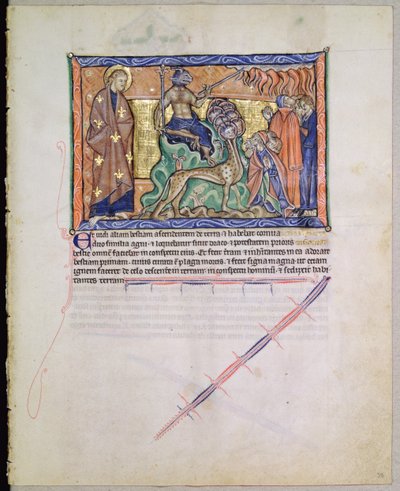 Et vidi aliam bestiam ascendentem de terra & habebat cornua
duo similia agni & loquebatur sicut draco & potestatem prioris
bestie omnem faciebat in conspectu eius Et fecit terram & inhabitantes in ea adorare
bestiam primam cuius curata est plaga mortis & fecit signa magna ut etiam
ignem faceret de celo descendere in terram in conspectu hominum & seducit habi
tantes terram